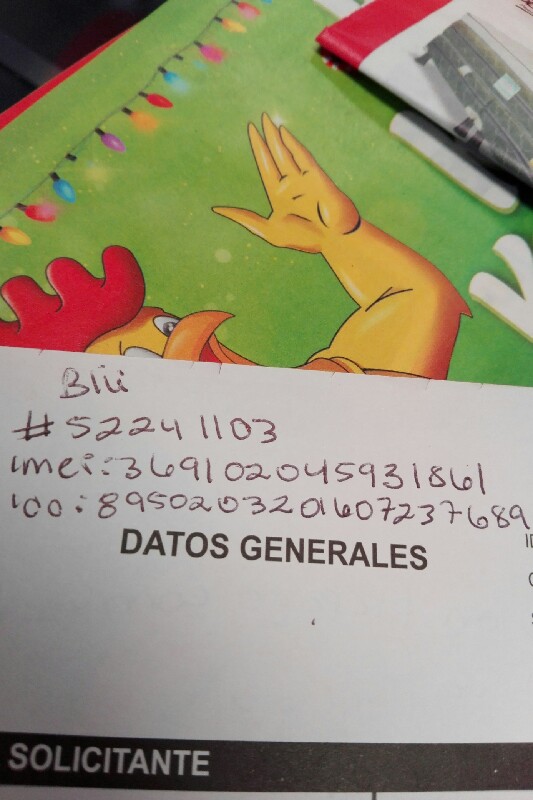 Blu
#52241103
imei:369102045931861
icc:8950203201607237689
DATOS GENERALES
SOLICITANTE